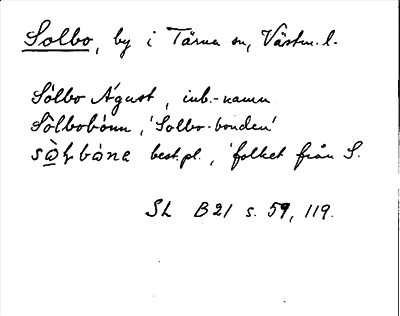 Solbo, by i Tärna sn, Västm. l.
Sólbo Águst, inb.-namn
Sòlbobònn, 'Solbo-bonden'
best. pl., 'folket från S.
SL B21 s. 59, 119.